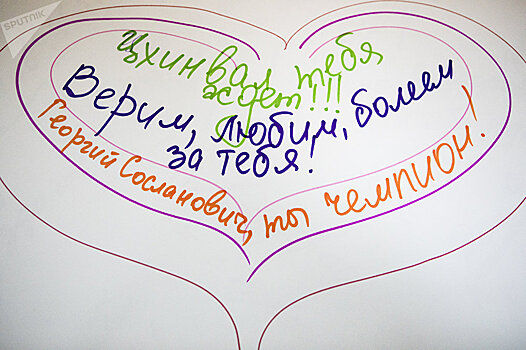 SPUTNIK
Цхинвал тебя
ждет!!!
Верим, любим, болеем
за тебя!
Георгий Сосланович, ты чемпион!